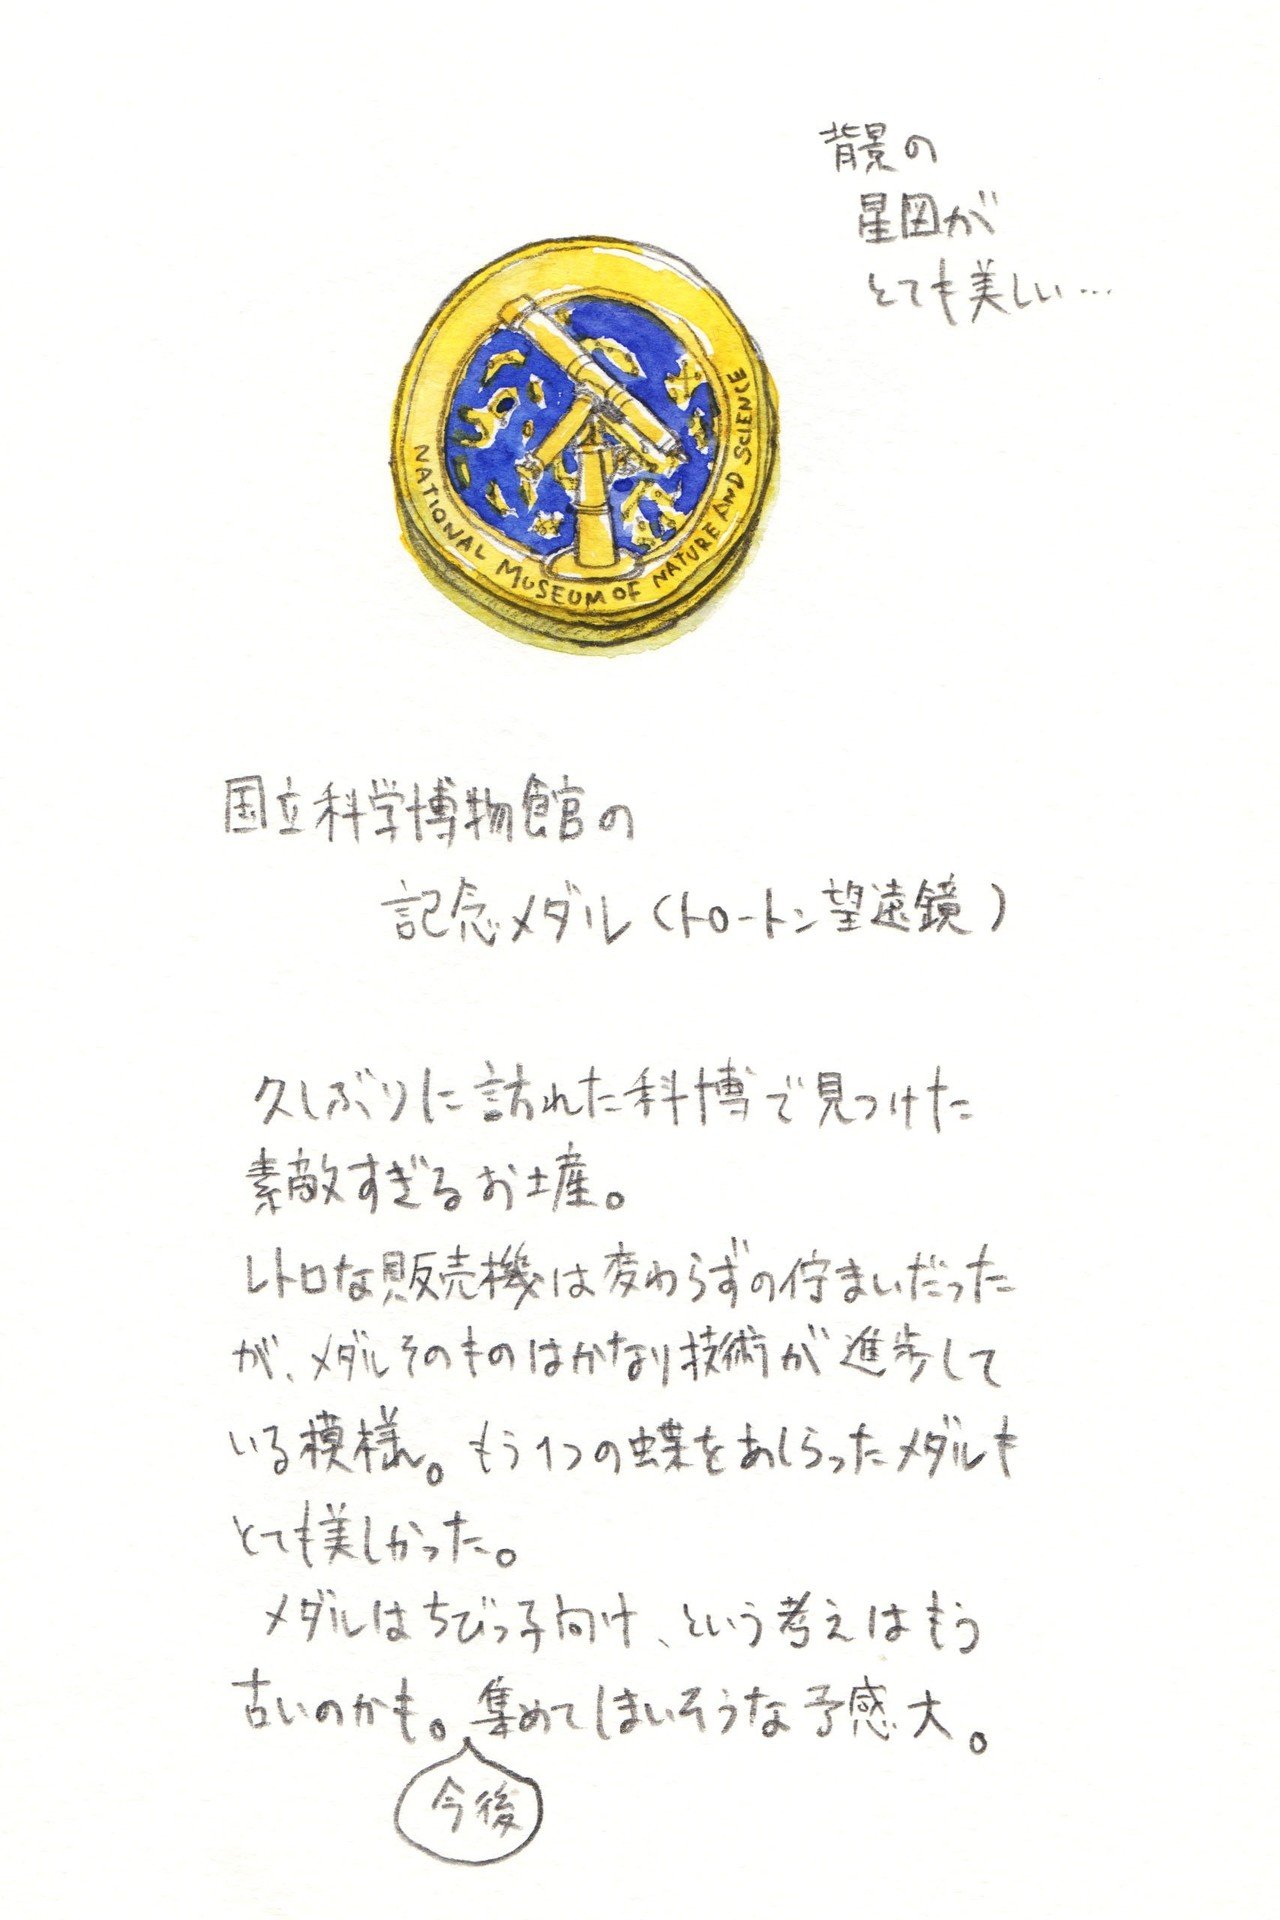 背景の
星図が
とても美しい…
NATIONAL MUSEUM OF NATURE AND SCIENCE
国立科学博物館の
記念メダル(トロートン望遠鏡)
久しぶりに訪れた科博で見つけた
素敵すぎるお土産。
レトロな販売機は変わらずの佇まいだった
が、メダルそのものはかなり技術が進歩して
いる模様。もう1つの蝶をあしらったメダルも
とても美しかった。
メダルはちびっ子向け、という考えはもう
古いのかも。集めてしまいそうな予感大。
今後